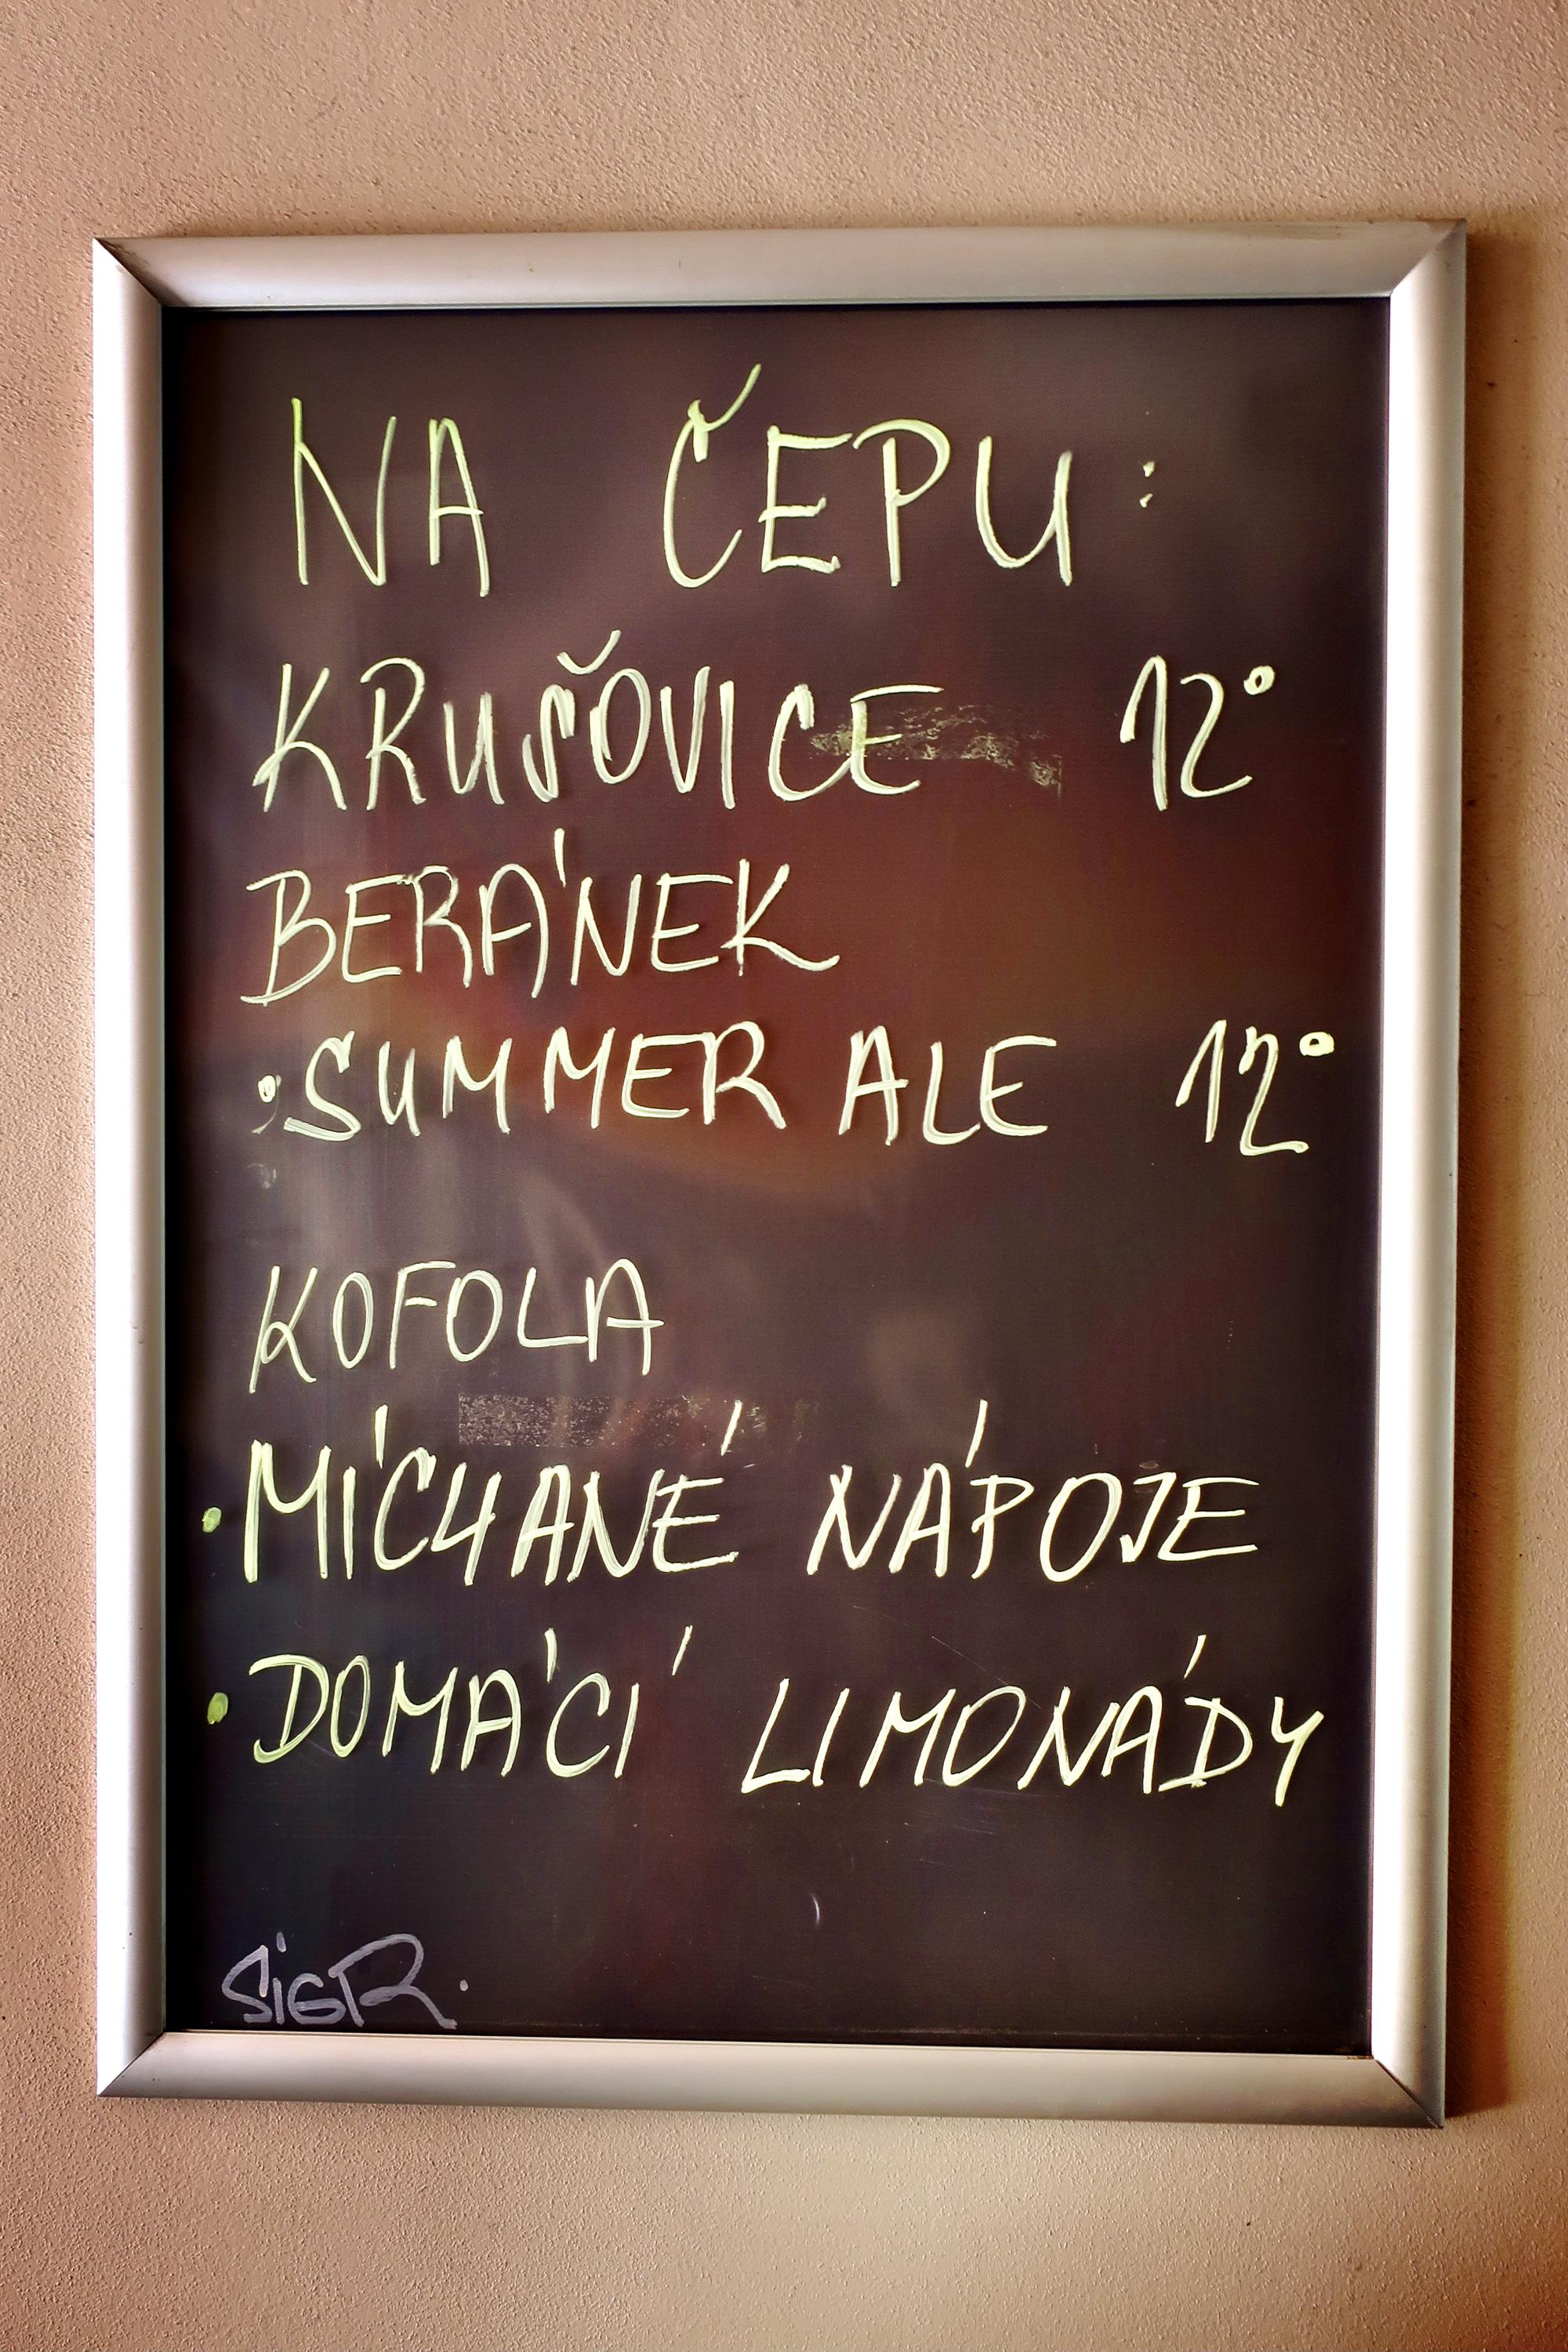 NA ČEPU:
KRUŠOVICE 12°
BERÁNEK
•SUMMER ALE 12°
KOFOLA
•MÍCHANÉ NÁPOJE
•DOMÁCÍ LIMONÁDY
SIGR.